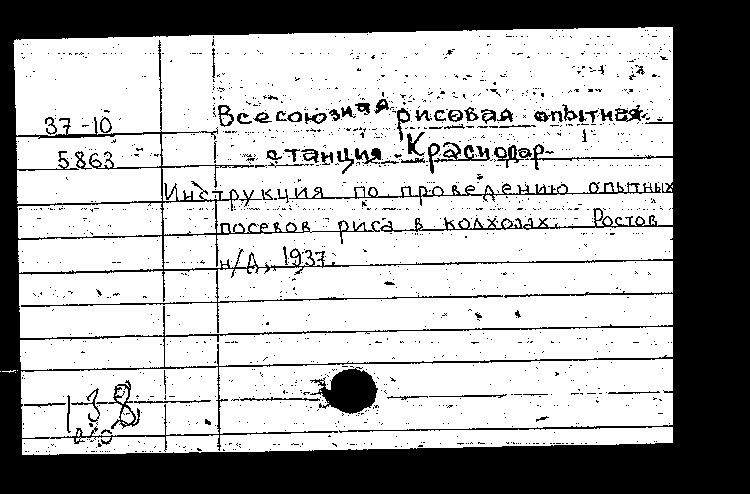 37-10 Всесоюзная рисовая опытная
5863 станция. Краснодар.
Инструкция по проведению опытных
посевов риса в колхозах. Ростов
н/Д., 1937.
138